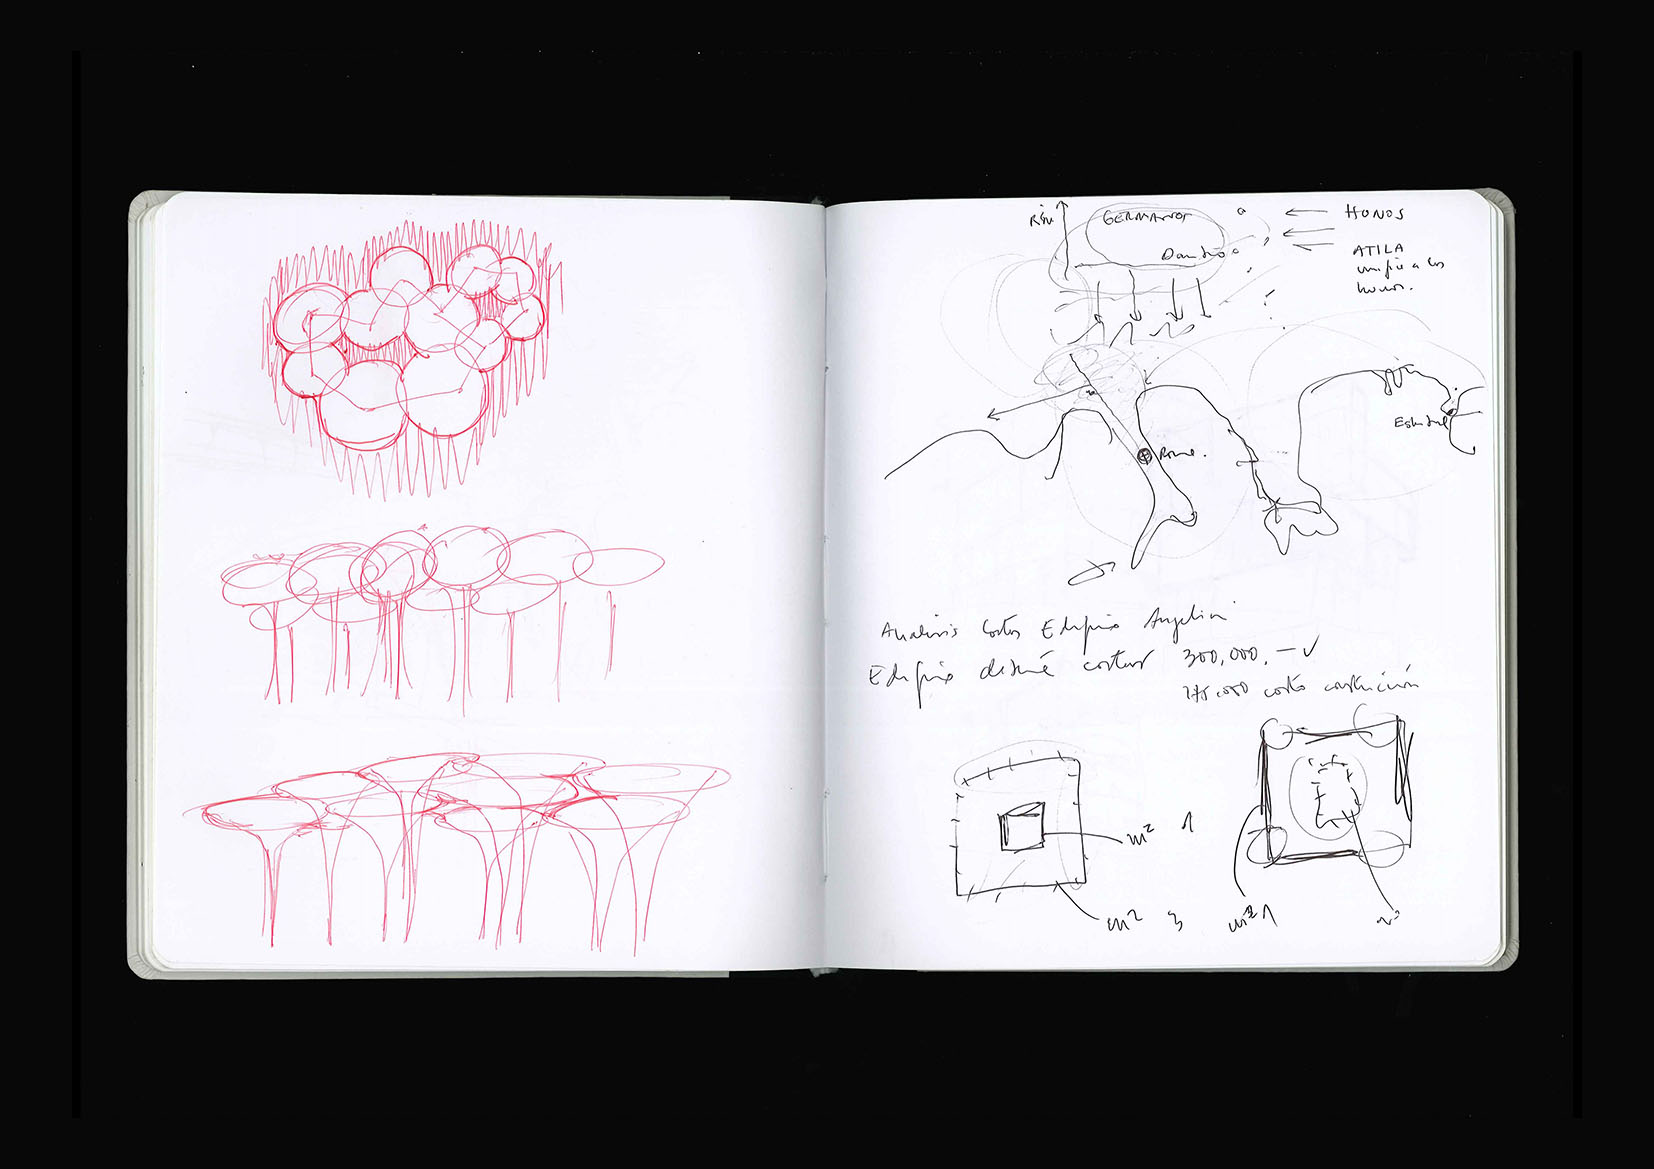 Rin
GERMANOS
HONOS
Danubio
ATILA
unifica los
hunos.
Roma.
Analisis Costos Edificio Angelini
Edificio debiné costar 300,000.-
275.000 costo construcción
m² 1
m² 3
m² 1
m²